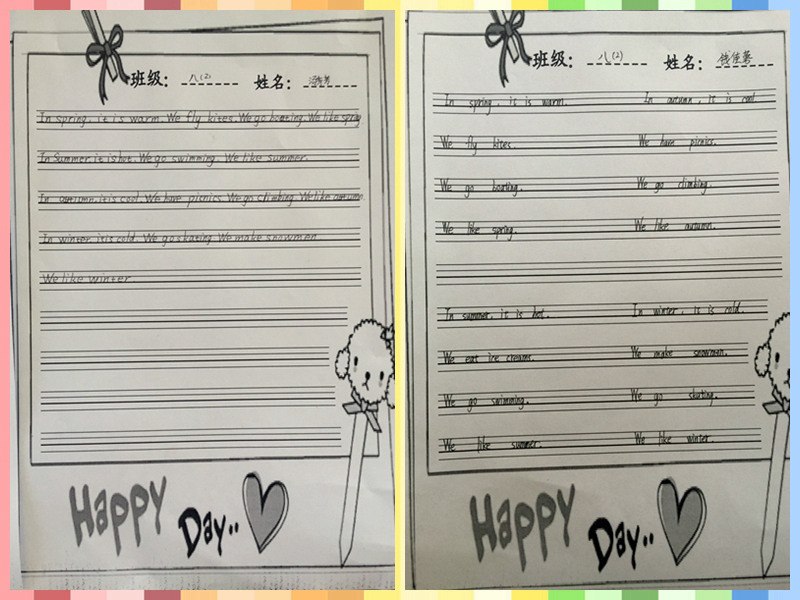 班级: 八(2) 姓名:
In spring, it is warm. We fly kites. We go boating. We like spring
In Summer, it is hot. We go swimming. We like summer.
In autumn, it is cool. We have picnics. We go climbing. We like autumn
In winter, it is cold. We go skating. We make snowmen.
We like winter.
Happy Day..
班级: 八(2) 姓名: 钱佳
In spring, it is warm. In autumn, it is cool.
We fly kites. We have picnics.
We go boating. We go climbing.
We like spring. We like autumn.
In summer, it is hot. In winter, it is cold.
We eat ice creams. We make snowman.
We go swimming. We go skating.
We like summer. We like winter.
Happy Day..